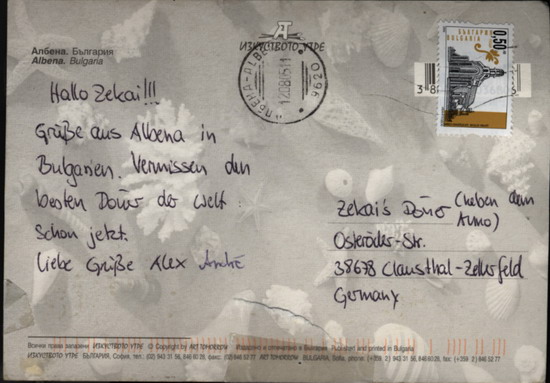 Албена. България
Albena. Bulgaria
ИЗКУСТВОТО УТРЕ
БЪЛГАРИЯ
BULGARIA
0.50
9620
Hallo Zekai!!!
Grüße aus Albena in
Bulgarien. Vermissen den
besten Döner der Welt
schon jetzt.
Liebe Grüße Alex André
Zekai's Döner (neben dem
Arno)
Osteröder-Str.
38678 Clausthal-Zellerfeld
Germany
Всички права запазени ИЗКУСТВОТО УТРЕ © Copyright by
ИЗКУСТВОТО УТРЕ БЪЛГАРИЯ, София, тел.: (02) 943 31 56,
BULGARIA, Sofia, phone: (+359 2) 943 31 56,
printed in Bulgaria